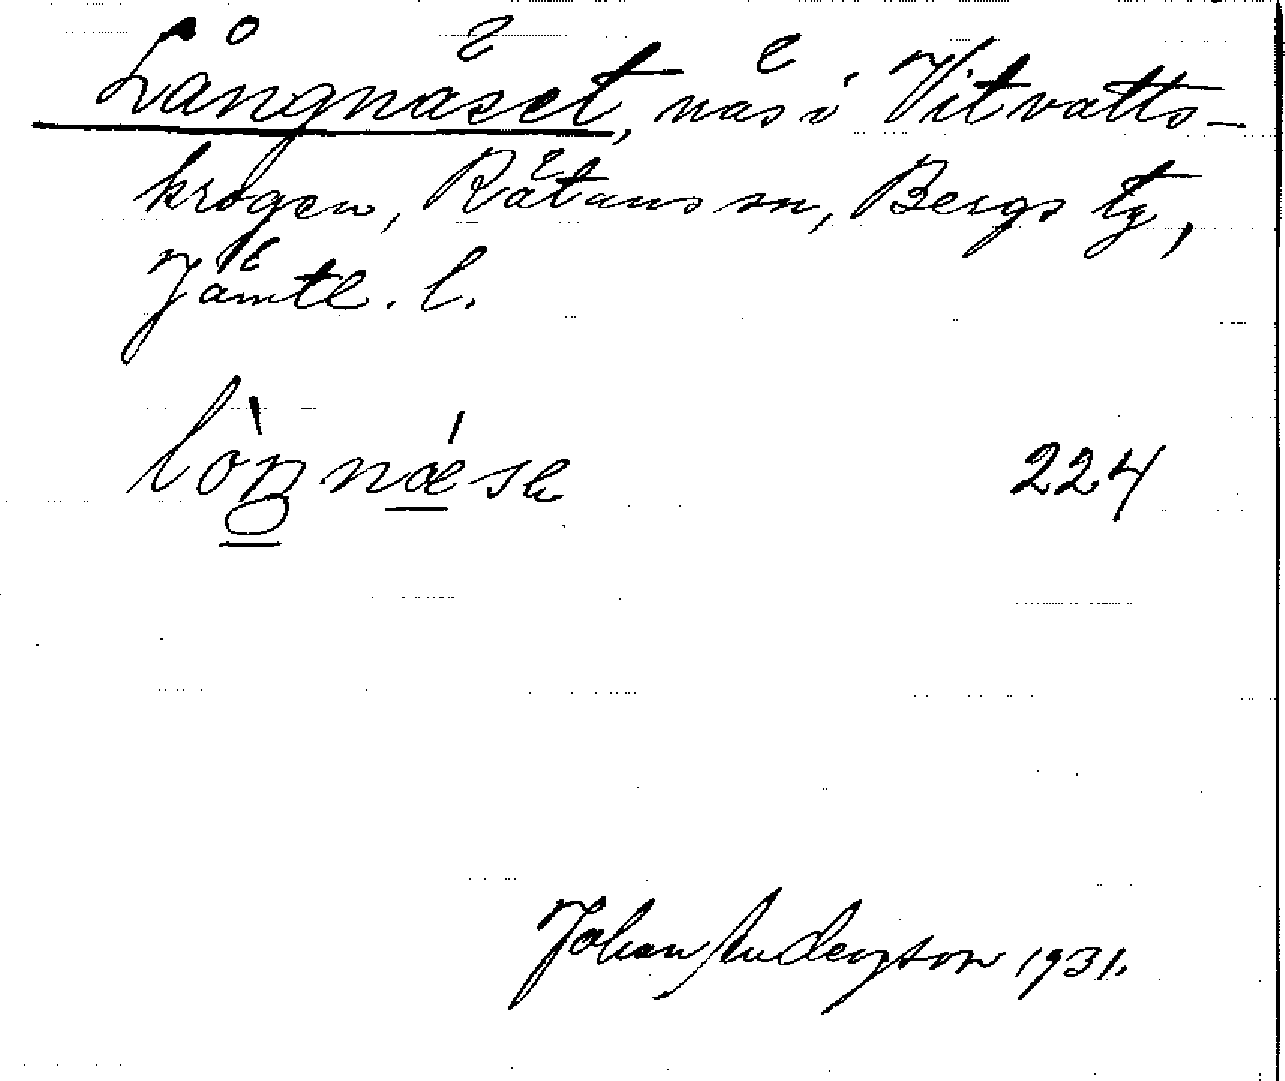 Långnäset, näs i Vitvatts-
krogen, Rätans sn, Bergs tg,
Jämtl. l.
224
Johan Anderzson 1931.